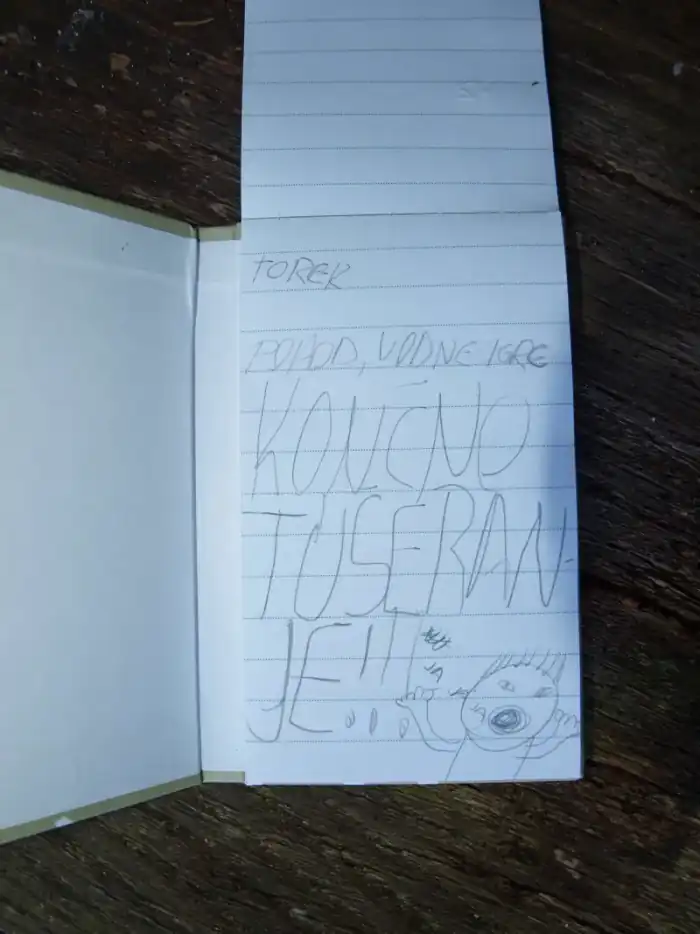 TOREK
POHOD, VODNE IGRE
KONČNO
TUŠERAN-
JE!!!